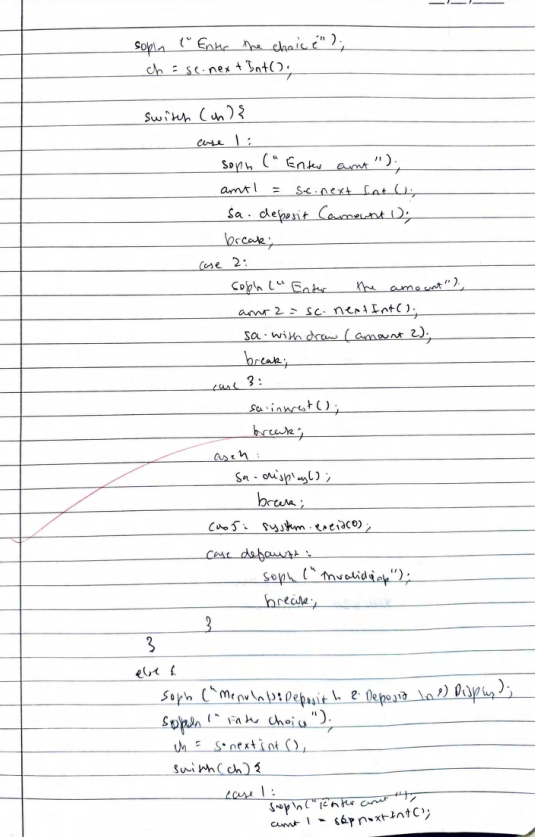 sopln ("Enter the choice");
ch = sc.nextInt();
switch (ch) {
case 1:
sopln ("Enter amt");
amt1 = sc.next Int ();
sa. deposit (amount 1);
break;
case 2:
sopln ("Enter the amount");
amt 2 = sc. nextInt();
sa. withdraw (amount 2);
break;
case 3:
sa.invest();
break;
case 4 :
sa.display();
break;
case 5: system.exit(0);
case default :
sopln ("Invalid inp");
break;
}
}
else {
sopln ("Menu \n Deposit \n 2. Deposit \n 3) Display);
sopln ("Enter choice");
ch = s.nextint ();
switch (ch) {
case 1:
sopln ("Enter amt");
amt 1 = nextInt();